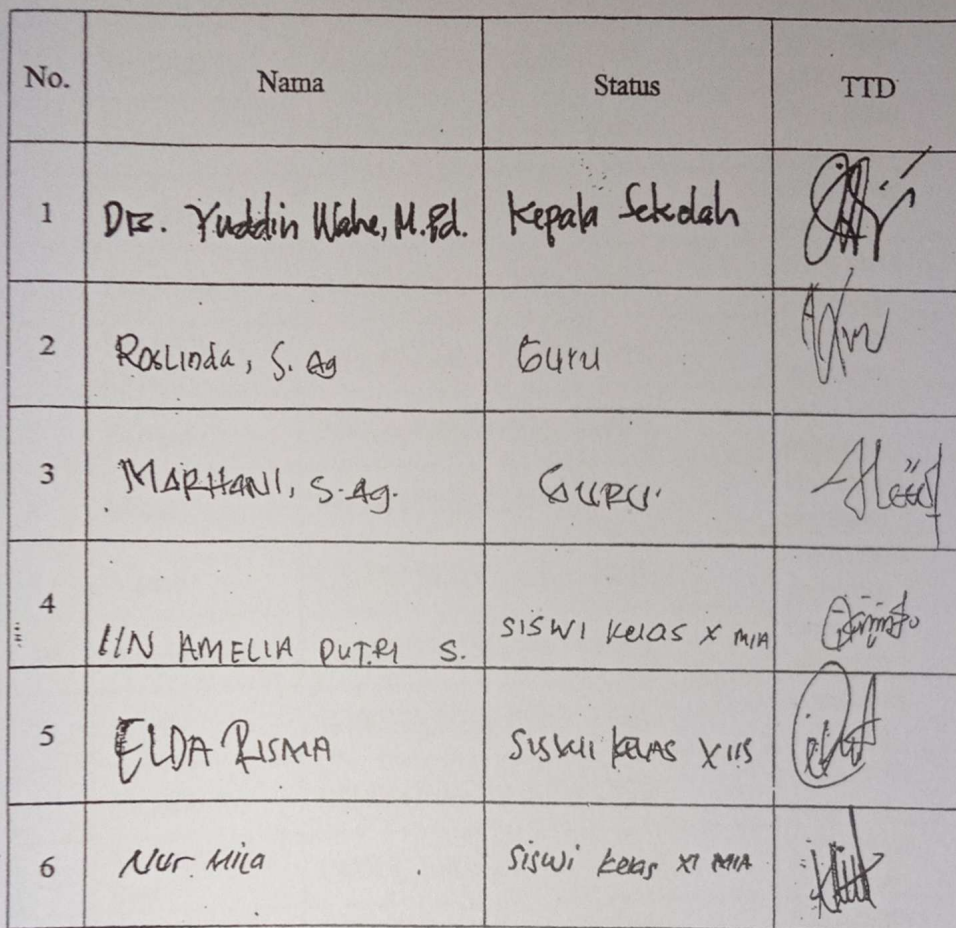 No. Nama Status TTD
1 Drs. Yuddin Wahe, M.Pd. Kepala Sekolah
2 Roslinda, S. Ag Guru
3 MARHANI, S.Ag. GURU
4 IIN AMELIA PUTRI S. SISWI Kelas X MIA
5 ELDA RISMA SISWI KELAS X IIS
6 Nur Mila Siswi Kelas XI MIA